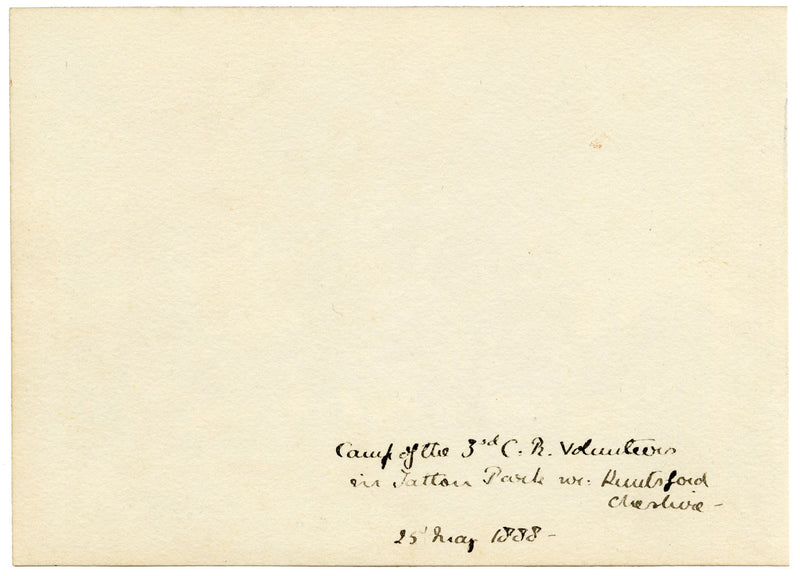 Camp of the 3rd C. R. Volunteers
in Tatton Park nr. Knutsford
Cheshire -
25 May 1888 -